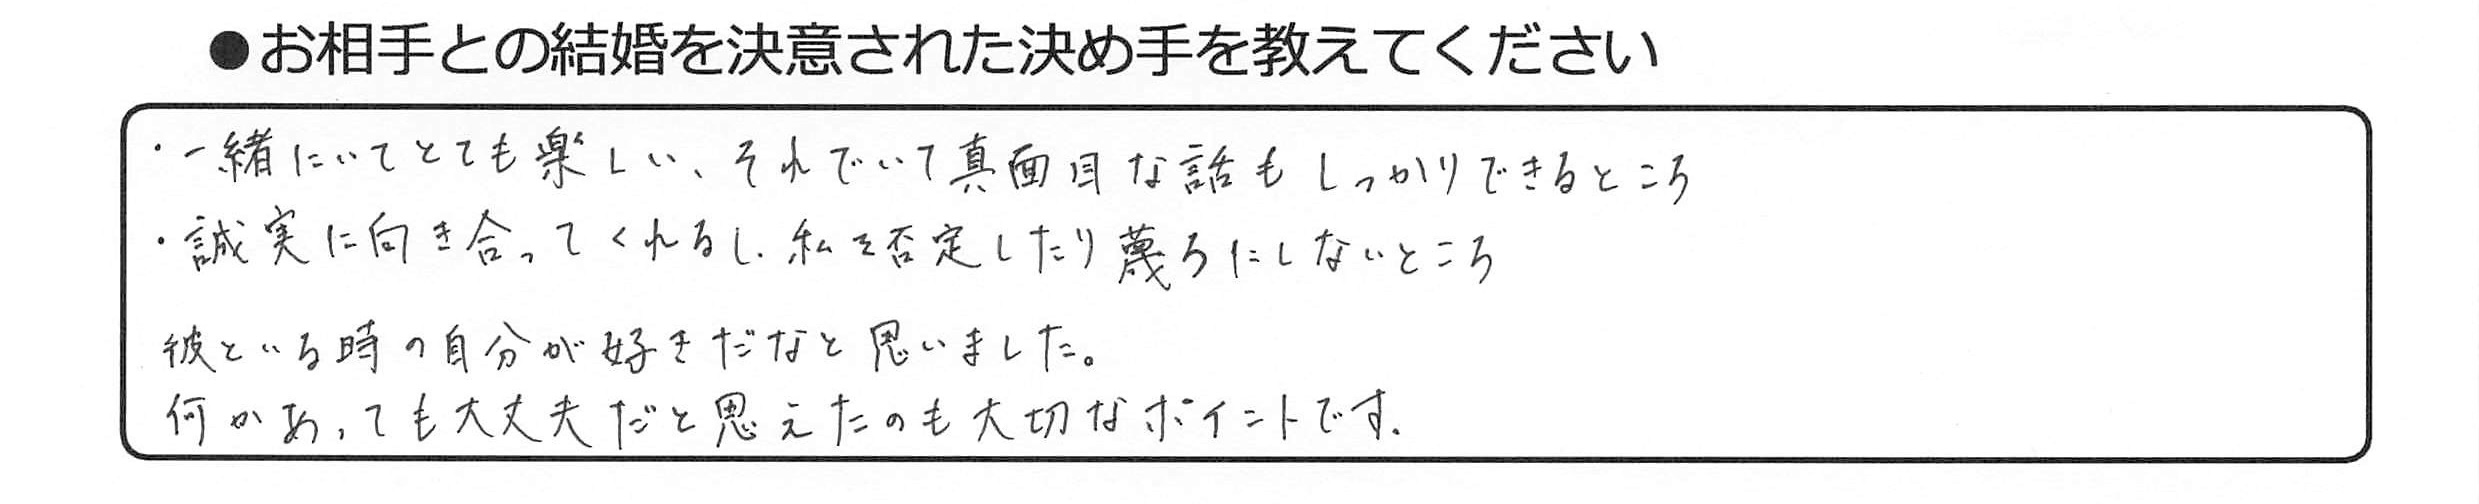 ●お相手との結婚を決意された決め手を教えてください
・一緒にいてとても楽しい、それでいて真面目な話もしっかりできるところ
・誠実に向き合ってくれるし、私を否定したり蔑ろにしないところ
彼といる時の自分が好きだなと思いました。
何かあっても大丈夫だと思えたのも大切なポイントです。